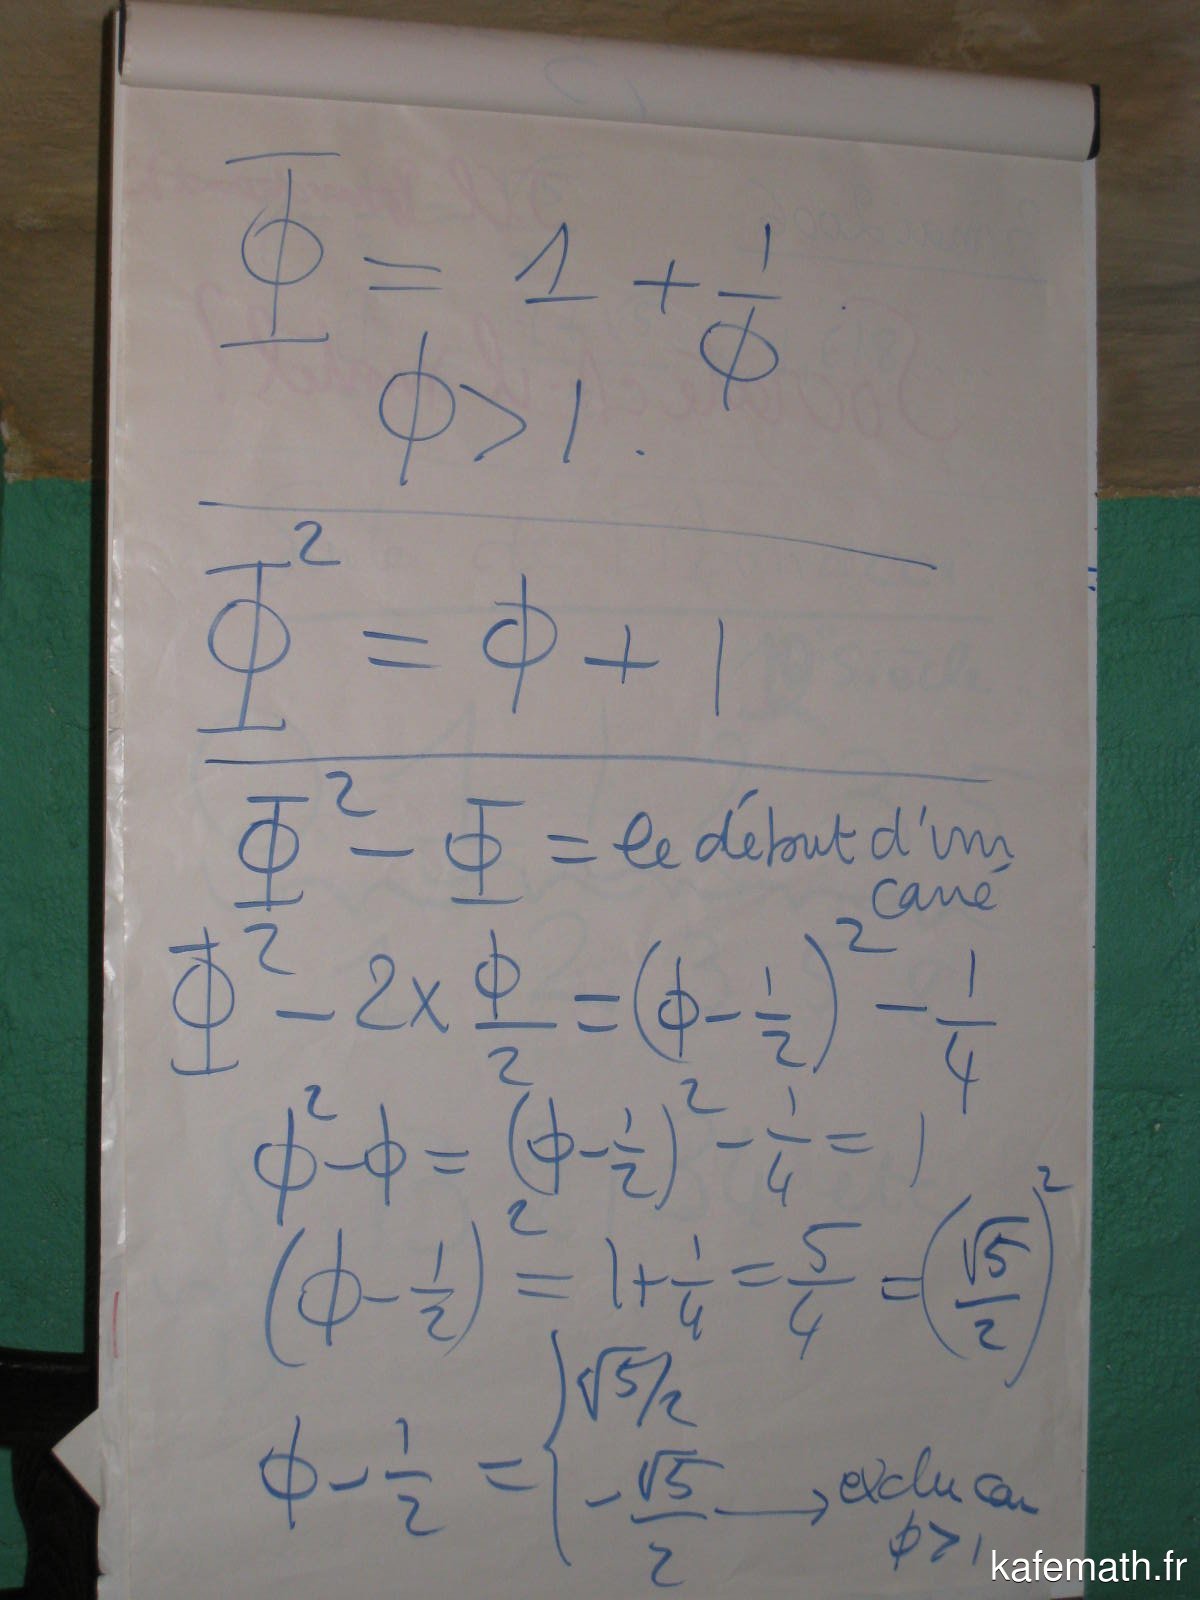 Φ = 1 + 1/φ
φ > 1.
Φ² = φ + 1
Φ² - Φ = le début d'un
carré
Φ² - 2 x φ/2 = (φ - 1/2)² - 1/4
φ² - φ = (φ - 1/2)² - 1/4 = 1
(φ - 1/2)² = 1 + 1/4 = 5/4 = (√5/2)²
φ - 1/2 = { √5/2
- √5/2 → exclu car
φ > 1
kafemath.fr